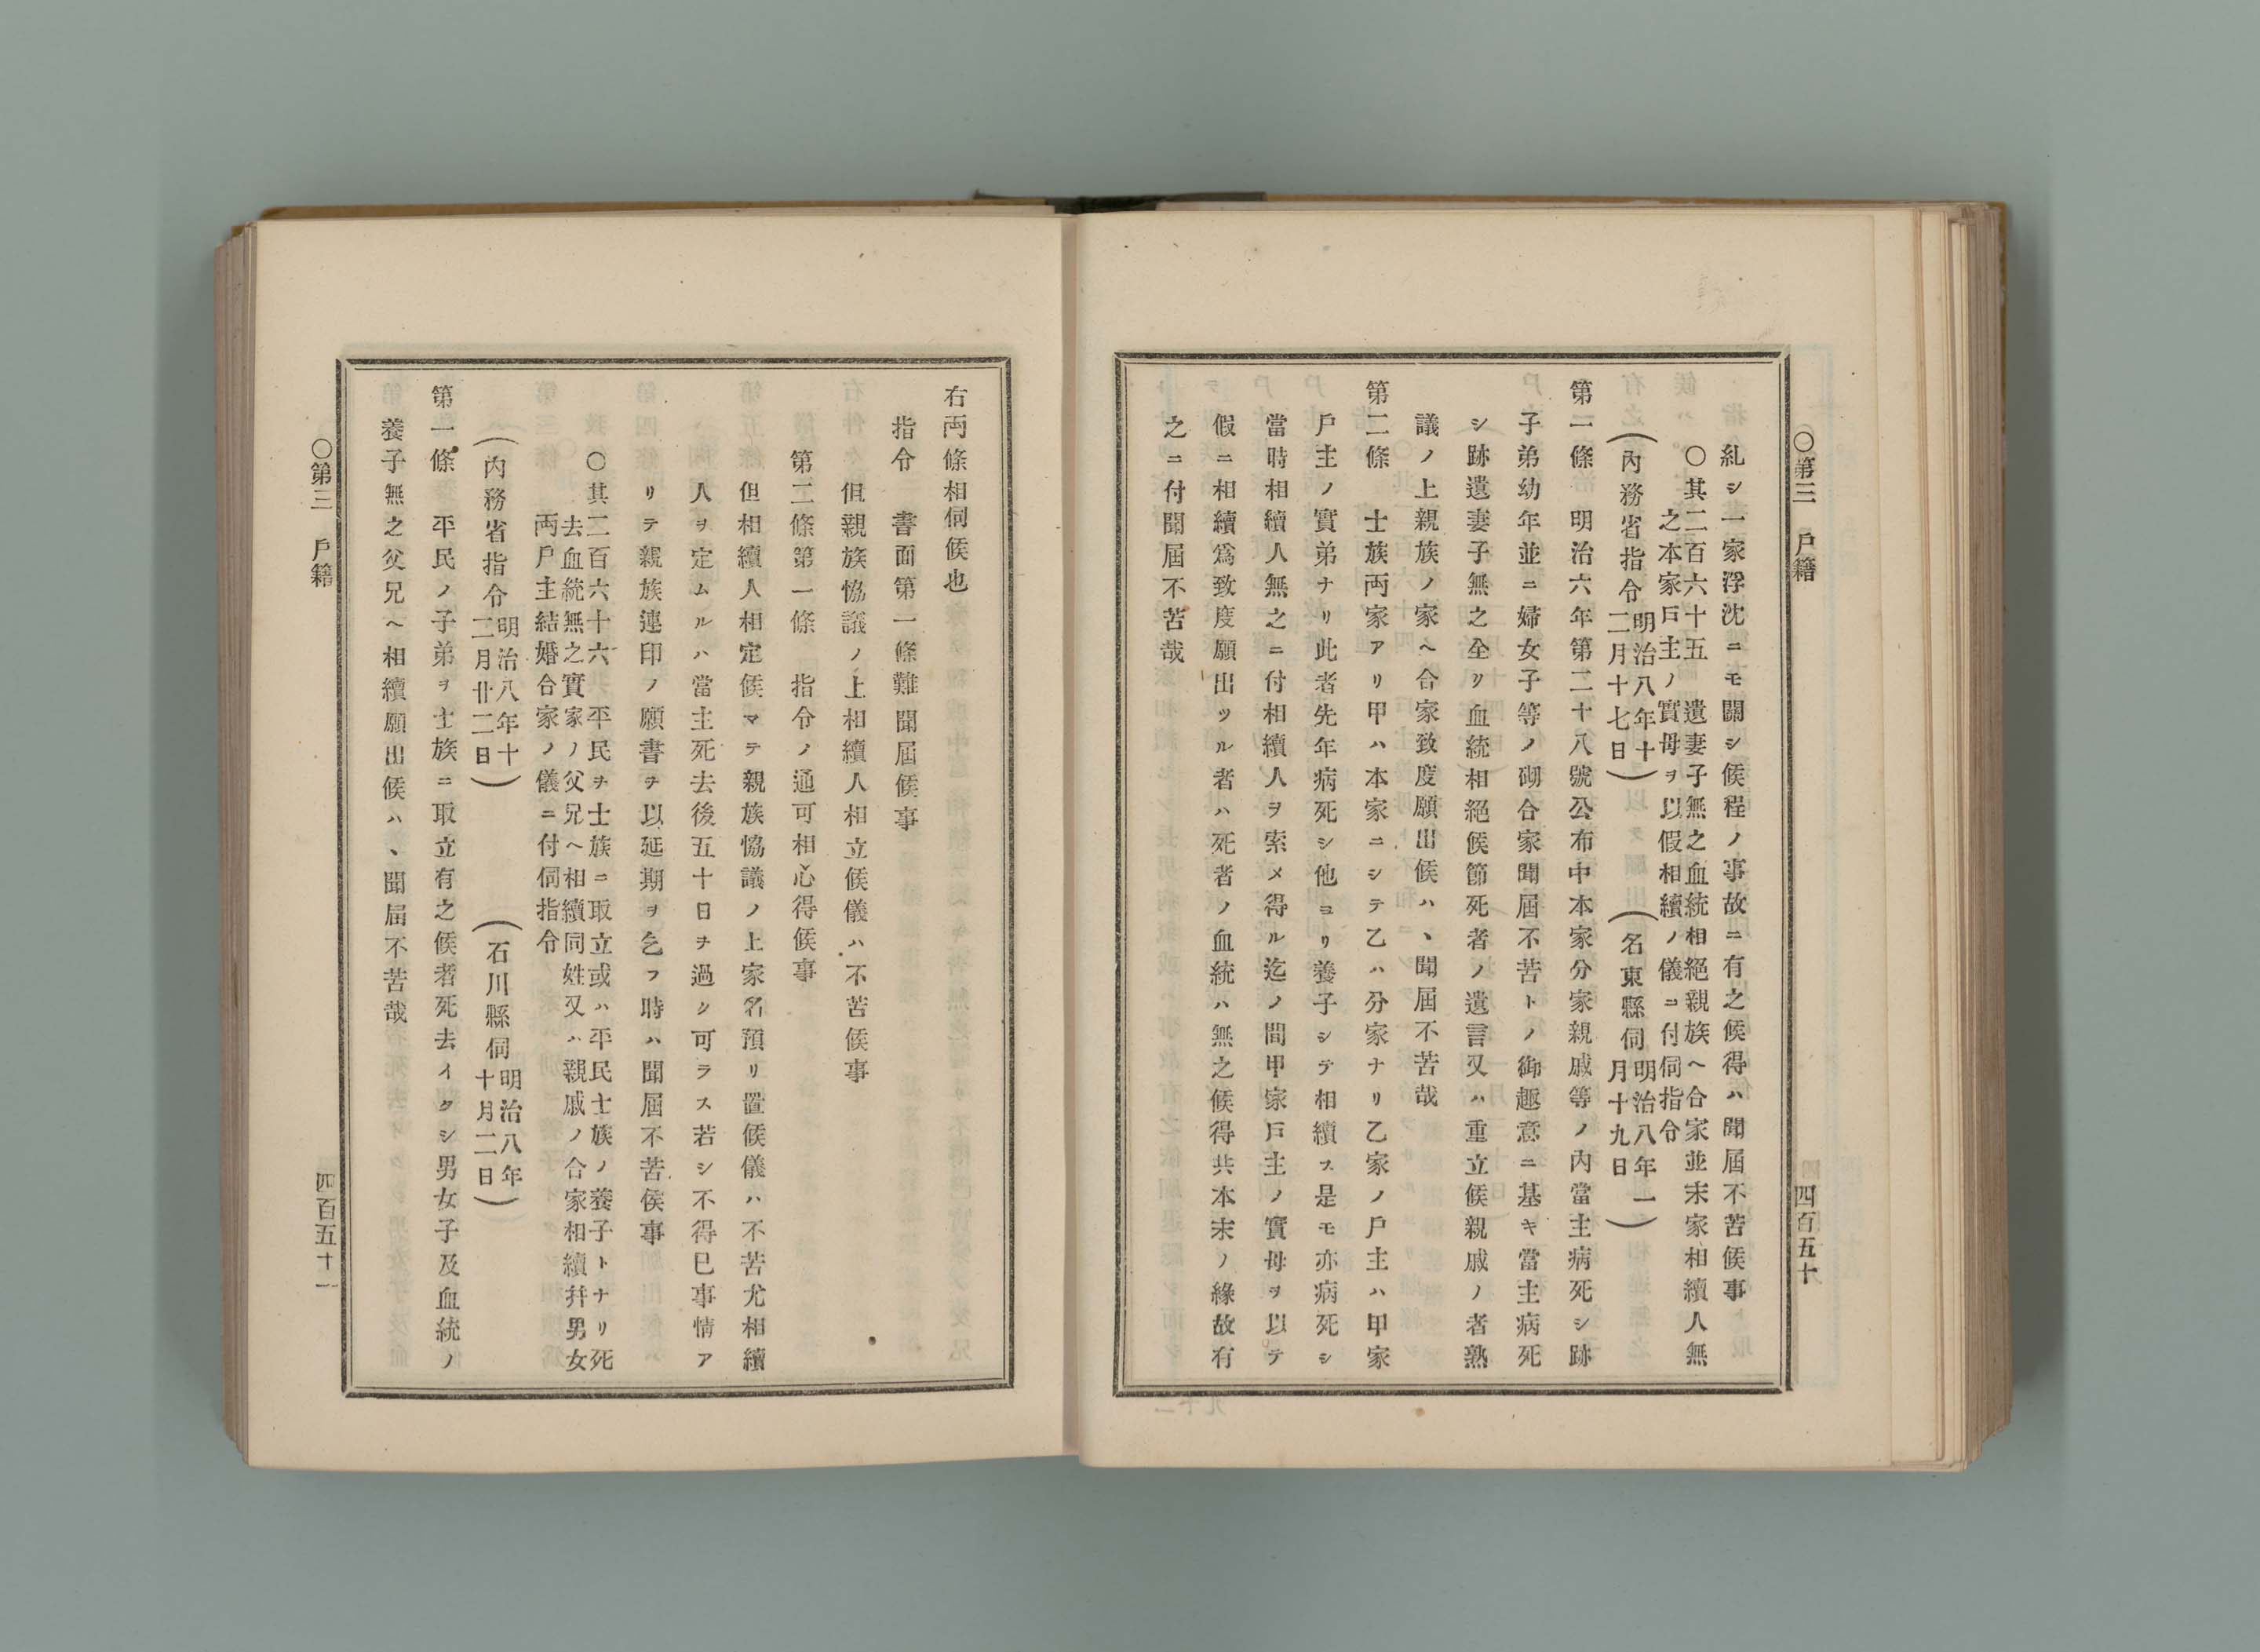 ○第三　戶籍
四百五十
糺シ一家浮沈ニモ關シ候程ノ事故ニ有之候得ハ聞屆不苦候事
○其二百六十五　遺妻子無之血統相絕親族ヘ合家並末家相續人無
之本家戶主ノ實母ヲ以假相續ノ儀ニ付伺指令
（內務省指令明治八年十
二月十七日）
（名東縣伺明治八年一
月十九日）
第一條　明治六年第二十八號公布中本家分家親戚等ノ內當主病死シ跡
子弟幼年並ニ婦女子等ノ砌合家聞屆不苦トノ御趣意ニ基キ當主病死
シ跡遺妻子無之全ク血統相絕候節死者ノ遺言又ハ重立候親戚ノ者熟
議ノ上親族ノ家ヘ合家致度願出候ハヽ聞屆不苦哉
第二條　士族兩家アリ甲ハ本家ニシテ乙ハ分家ナリ乙家ノ戶主ハ甲家
戶主ノ實弟ナリ此者先年病死シ他ヨリ養子シテ相續ス是モ亦病死シ
當時相續人無之ニ付相續人ヲ索メ得ル迄ノ間甲家戶主ノ實母ヲ以テ
假ニ相續爲致度願出ツル者ハ死者ノ血統ハ無之候得共本末ノ緣故有
之ニ付聞屆不苦哉
右兩條相伺候也
指令　書面第一條難聞屆候事
但親族恊議ノ上相續人相立候儀ハ不苦候事
第二條第一條　指令ノ通可相心得候事
但相續人相定候マテ親族恊議ノ上家名預リ置候儀ハ不苦尤相續
人ヲ定ムルハ當主死去後五十日ヲ過ク可ラス若シ不得已事情ア
リテ親族連印ノ願書ヲ以延期ヲ乞フ時ハ聞屆不苦候事
○其二百六十六　平民ヲ士族ニ取立或ハ平民士族ノ養子トナリ死
去血統無之實家ノ父兄ヘ相續同姓又ハ親戚ノ合家相續幷男女
兩戶主結婚合家ノ儀ニ付伺指令
（內務省指令明治八年十
二月廿二日）
（石川縣伺明治八年
十月二日）
第一條　平民ノ子弟ヲ士族ニ取立有之候者死去イタシ男女子及血統ノ
養子無之父兄ヘ相續願出候ハヽ聞屆不苦哉
○第三　戶籍
四百五十一